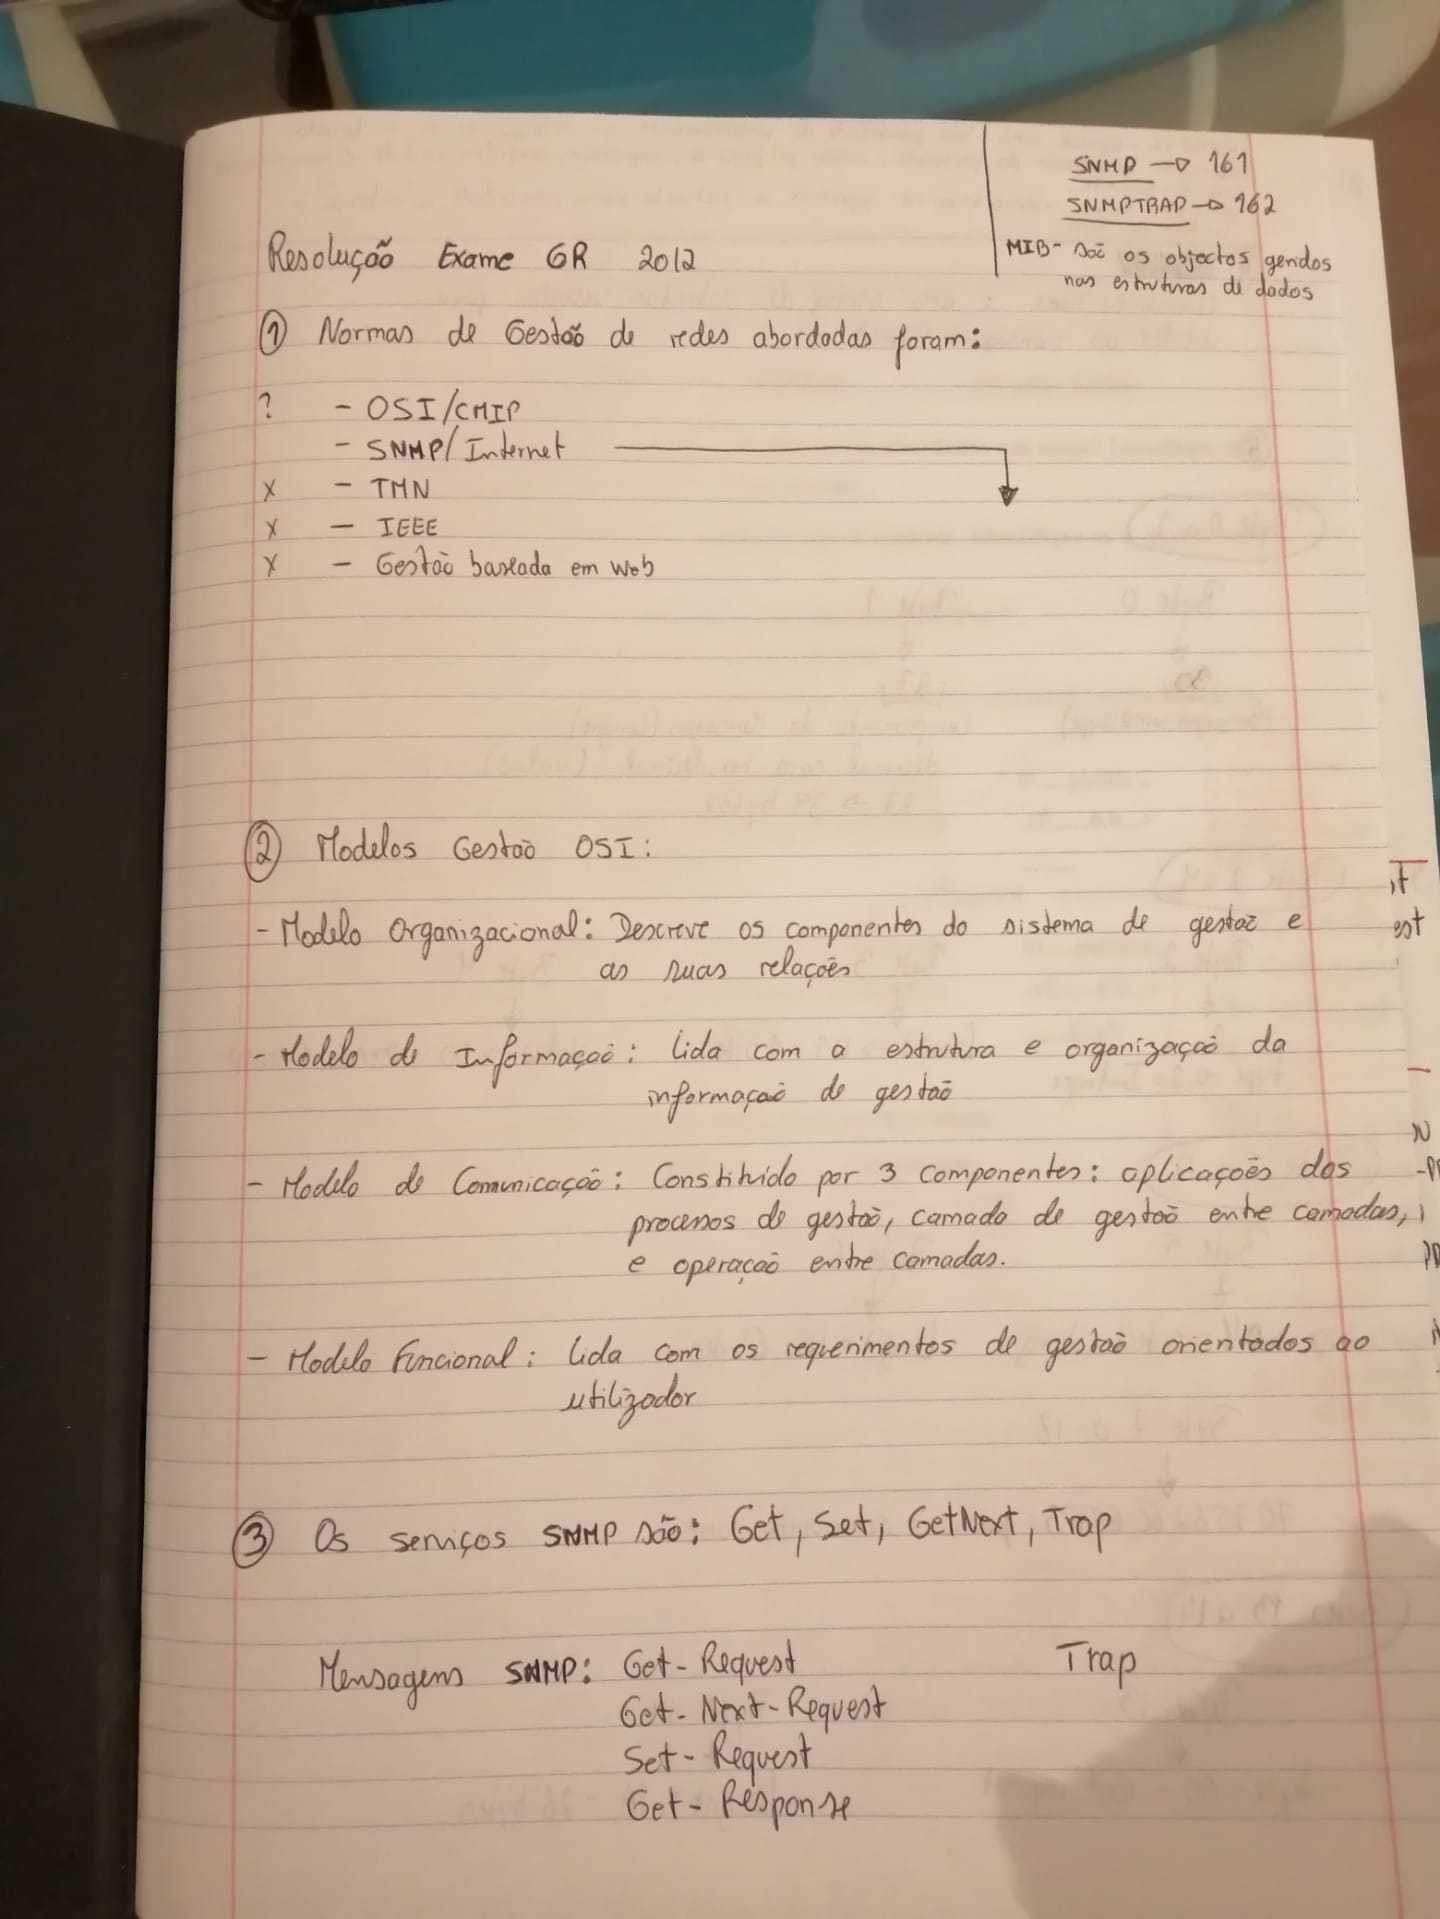 SNMP → 161
SNMPTRAP → 162
MIB - São os objectos geridos
nas estruturas de dados
Resolução Exame GR 2012
① Normas de Gestão de redes abordadas foram:
? - OSI/CMIP
- SNMP/Internet
X - TMN
X - IEEE
X - Gestão baseada em Web
② Modelos Gestão OSI:
- Modelo Organizacional: Descreve os componentes do sistema de gestão e
as suas relações
- Modelo de Informação: Lida com a estrutura e organização da
informação de gestão
- Modelo de Comunicação: Constituido por 3 componentes: aplicações dos
processos de gestão, camada de gestão entre camadas,
e operação entre camadas.
- Modelo Funcional: Lida com os requerimentos de gestão orientados ao
utilizador
③ Os serviços SNMP são: Get, Set, GetNext, Trap
Mensagens SNMP: Get-Request Trap
Get-Next-Request
Set-Request
Get-Response